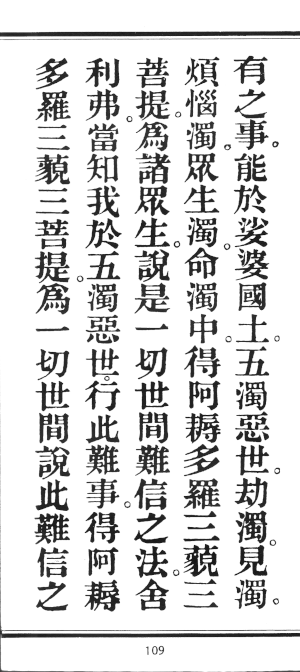 有之事。能於娑婆國土。五濁惡世。劫濁。見濁。
煩惱濁。眾生濁。命濁中。得阿耨多羅三藐三
菩提。為諸眾生。說是一切世間難信之法。舍
利弗。當知我於五濁惡世。行此難事。得阿耨
多羅三藐三菩提。為一切世間說此難信之
109